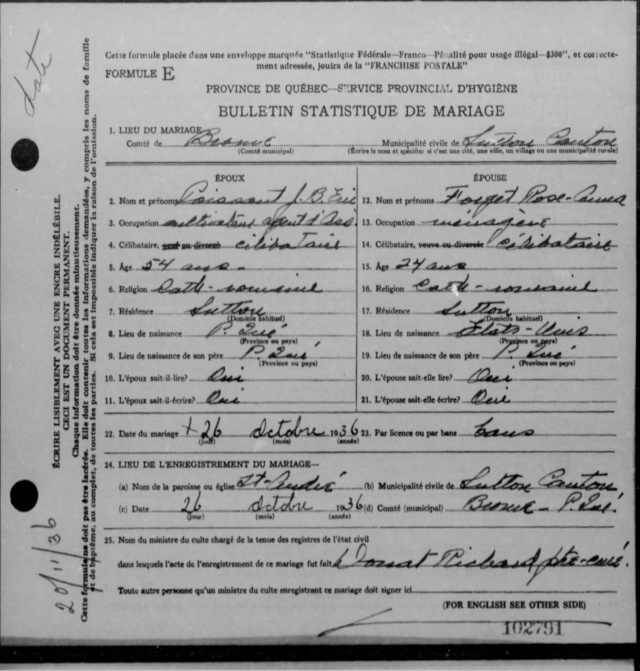 Late
Cette formule placée dans une enveloppe marquée "Statistique Fédérale—Franco—Pénalité pour usage illégal—$300", et correcte-
ment adressée, jouira de la "FRANCHISE POSTALE"
FORMULE E
PROVINCE DE QUÉBEC—SERVICE PROVINCIAL D'HYGIÈNE
BULLETIN STATISTIQUE DE MARIAGE
1. LIEU DU MARIAGE
Comté de Brome Municipalité civile de Sutton Canton
(Comté municipal) (Écrire le nom et spécifier si c'est une cité, une ville, un village ou une municipalité rurale)
ÉPOUX
2. Nom et prénoms Poissant J. B. Eric
3. Occupation cultivateur agent d'Ass.
4. Célibataire, veuf ou divorcé célibataire
5. Age 54 ans
6. Religion Cath-romaine
7. Résidence Sutton
(Domicile habituel)
8. Lieu de naissance P. Qué
(Province ou pays)
9. Lieu de naissance de son père P. Qué
(Province ou pays)
10. L'époux sait-il lire? Oui
11. L'époux sait-il écrire? Oui
ÉPOUSE
12. Nom et prénoms Forget Rose-Anna
13. Occupation ménagère
14. Célibataire, veuve ou divorcée célibataire
15. Age 24 ans
16. Religion Cath-romaine
17. Résidence Sutton
(Domicile habituel)
18. Lieu de naissance États-Unis
(Province ou pays)
19. Lieu de naissance de son père P. Qué
(Province ou pays)
20. L'épouse sait-elle lire? Oui
21. L'épouse sait-elle écrire? Oui
22. Date du mariage 26 octobre 1936 23. Par licence ou par bans bans
(jour) (mois) (année)
24. LIEU DE L'ENREGISTREMENT DU MARIAGE—
(a) Nom de la paroisse ou église St-André (b) Municipalité civile de Sutton Canton
(c) Date 26 octobre 1936 (d) Comté (municipal) Brome - P. Qué.
(jour) (mois) (année)
25. Nom du ministre du culte chargé de la tenue des registres de l'état civil
dans lesquels l'acte de l'enregistrement de ce mariage fut fait Donat Richard ptre-curé.
Toute autre personne qu'un ministre du culte enregistrant ce mariage doit signer ici
(FOR ENGLISH SEE OTHER SIDE)
102791
ÉCRIRE LISIBLEMENT AVEC UNE ENCRE INDÉLÉBILE.
CECI EST UN DOCUMENT PERMANENT.
Chaque information doit être donnée minutieusement.
Cette formule ne doit pas être lacérée. Elle doit contenir toutes les informations demandées, y compris les noms de famille
et de baptême, au complet, de toutes les parties. Si cela est impossible indiquer la raison de l'omission.
20/11/36